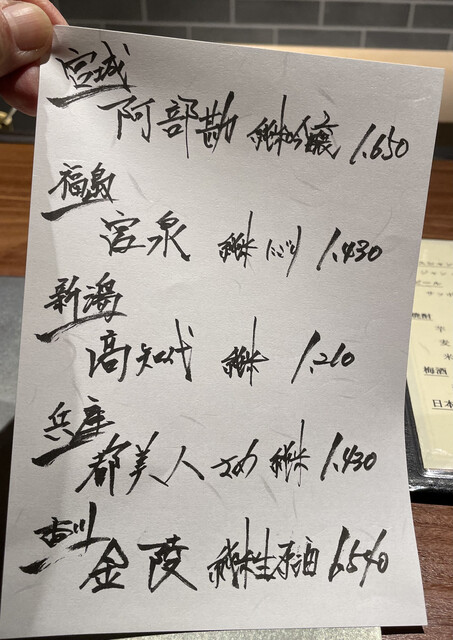 宮城
阿部勘 純米吟醸 1.650
福島
宮泉 純米 にごり 1.430
新潟
高知代 純米 1.210
兵庫
都美人 純米 1.430
香川
金陵 純米生原酒 1.540
サッポ
焼酎
芋
麦
米
梅酒
日本